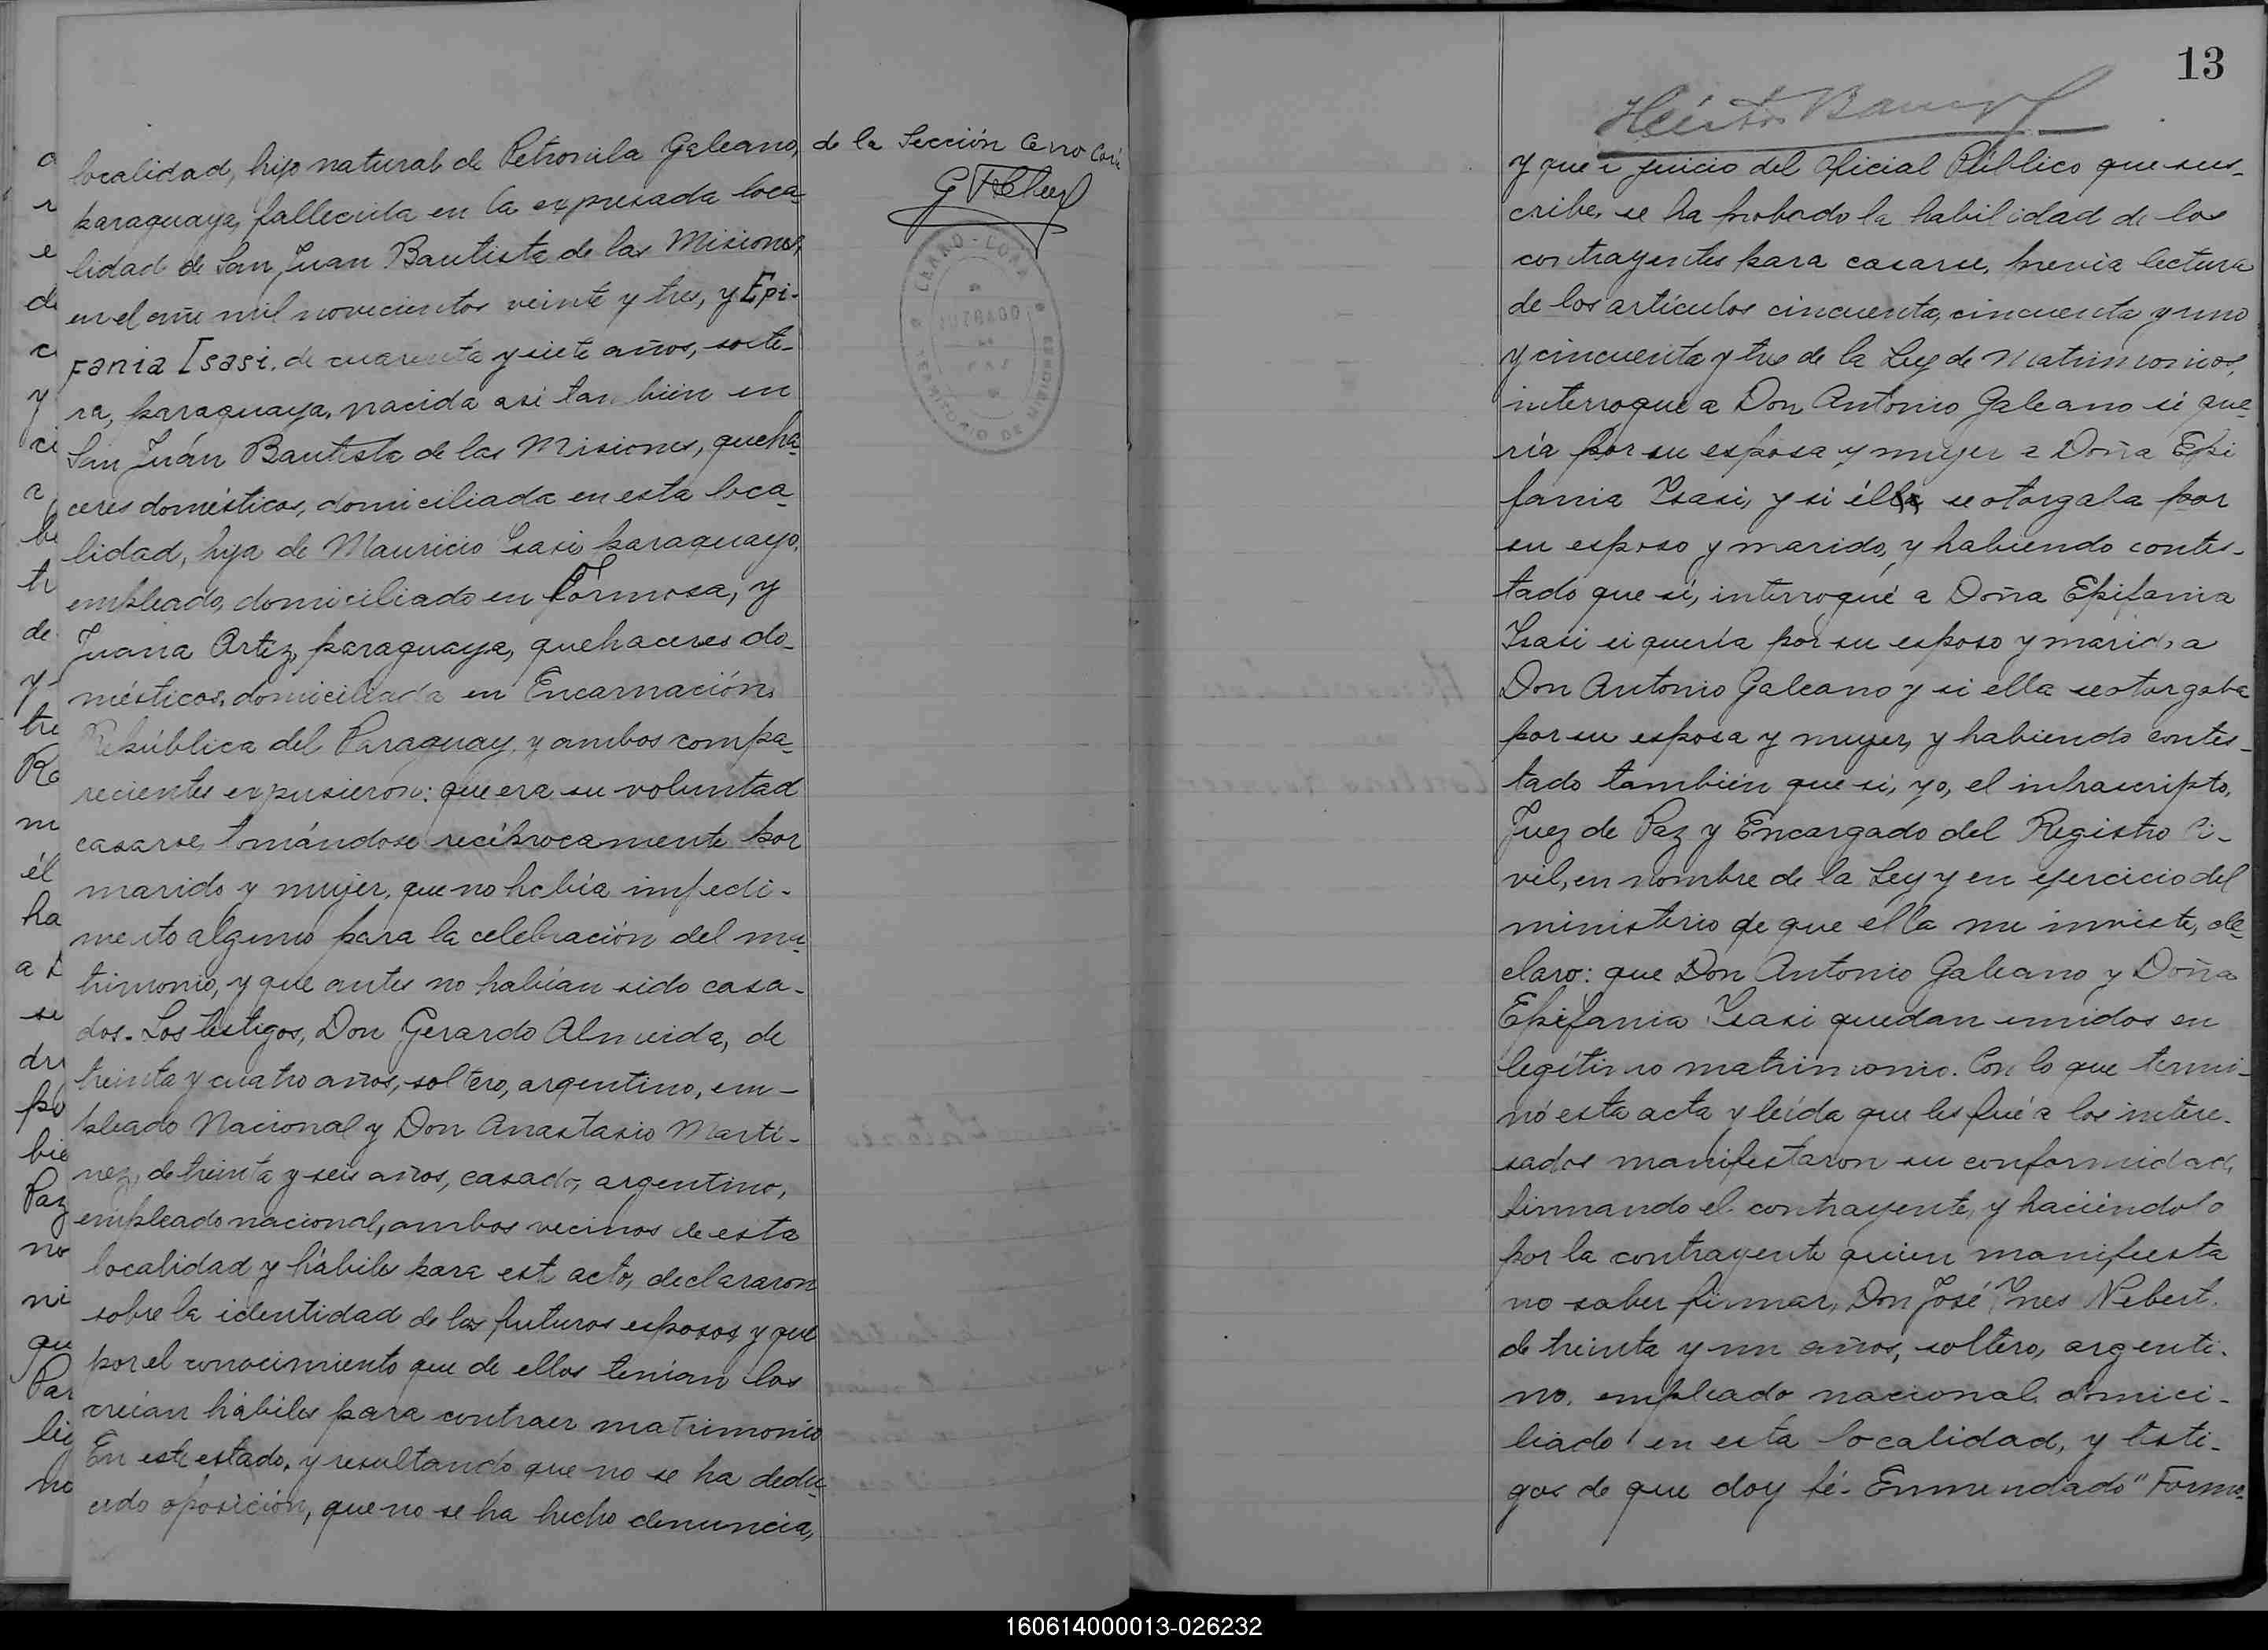 localidad, hijo natural de Petronila Galeano,
paraguaya, fallecida en la expresada loca-
lidad de San Juan Bautista de las Misiones,
en el año mil novecientos veinte y tres, y Epi-
fania Isasi, de cuarenta y siete años, solte-
ra, paraguaya, nacida así tambien en
San Juán Bautista de las Misiones, queha-
ceres domésticos, domiciliada en esta loca-
lidad, hija de Mauricio Isasi, paraguayo,
empleado, domiciliado en Formosa, y
Juana Ortiz, paraguaya, quehaceres do-
mésticos, domiciliada en Encarnación,
República del Paraguay, y ambos compa-
recientes expusieron: que era su voluntad
casarse, tomándose recíprocamente por
marido y mujer, que no había impedi-
mento alguno para la celebración del ma-
trimonio, y que antes no habían sido casa-
dos.- Los testigos, Don Gerardo Almeida, de
treinta y cuatro años, soltero, argentino, em-
pleado Nacional y Don Anastasio Martí-
nez, de treinta y seis años, casado, argentino,
empleado nacional, ambos vecinos de esta
localidad y hábiles para est acto, declararon
sobre la identidad de los futuros esposos y que
por el conocimiento que de ellos tenían los
creían hábiles para contraer matrimonio
En este estado, y resultando que no se ha dedu-
cido oposición, que no se ha hecho denuncia,
de la Sección Cerro Corá
13
Héctor
y que a juicio del Oficial Público que sus-
cribe, se ha probado la habilidad de los
contrayentes para casarse, previa lectura
de los artículos cincuenta, cincuenta y uno
y cincuenta y tres de la Ley de Matrimonios,
interrogue a Don Antonio Galeano si que-
ría por su esposa y mujer a Doña Epi
fania Isasi, y si él se otorgaba por
su esposo y marido, y habiendo contes-
tado que sí, interrogué a Doña Epifania
Isasi si quería por su esposo y marido a
Don Antonio Galeano y si ella se otorgaba
por su esposa y mujer, y habiendo contes-
tado también que si, yo, el infrascripto,
Juez de Paz y Encargado del Registro Ci-
vil, en nombre de la Ley y en ejercicio del
ministerio de que ella me inviste, de-
claro: que Don Antonio Galeano y Doña
Epifania Isasi quedan unidos en
legítimo matrimonio. Con lo que termi-
nó esta acta y leída que les fué a los intere-
sados manifestaron su conformidad,
firmando el contrayente, y haciéndolo
por la contrayente quien manifiesta
no saber firmar, Don José Ynes Nebert.
de treinta y un años, soltero, argenti-
no, empleado nacional, domici-
liado en esta localidad, y testi-
gos de que doy fé.- Enmendado "Formo-
160614000013-026232